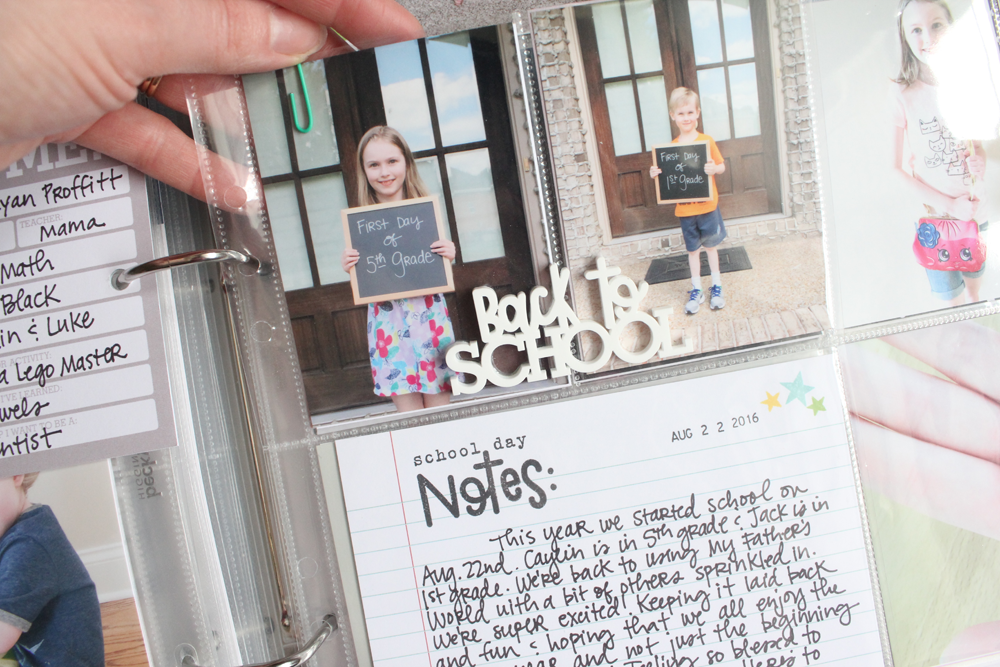 ME:
yan Proffitt
TEACHER:
Mama
Math
Black
in & Luke
ACTIVITY:
a Lego Master
LEARNED:
wels
I WANT TO BE A:
ntist
First Day
of
5th Grade
First Day
of
1st Grade
Back to
SCHOOL
school day
AUG 2 2 2016
Notes:
This year we started school on
Aug. 22nd. Caylin is in 5th grade & Jack is in
1st grade. We're back to using My Father's
World with a bit of others sprinkled in.
We're super excited! Keeping it laid back
and fun & hoping that we all enjoy the
year and not just the beginning
Feeling so blessed to